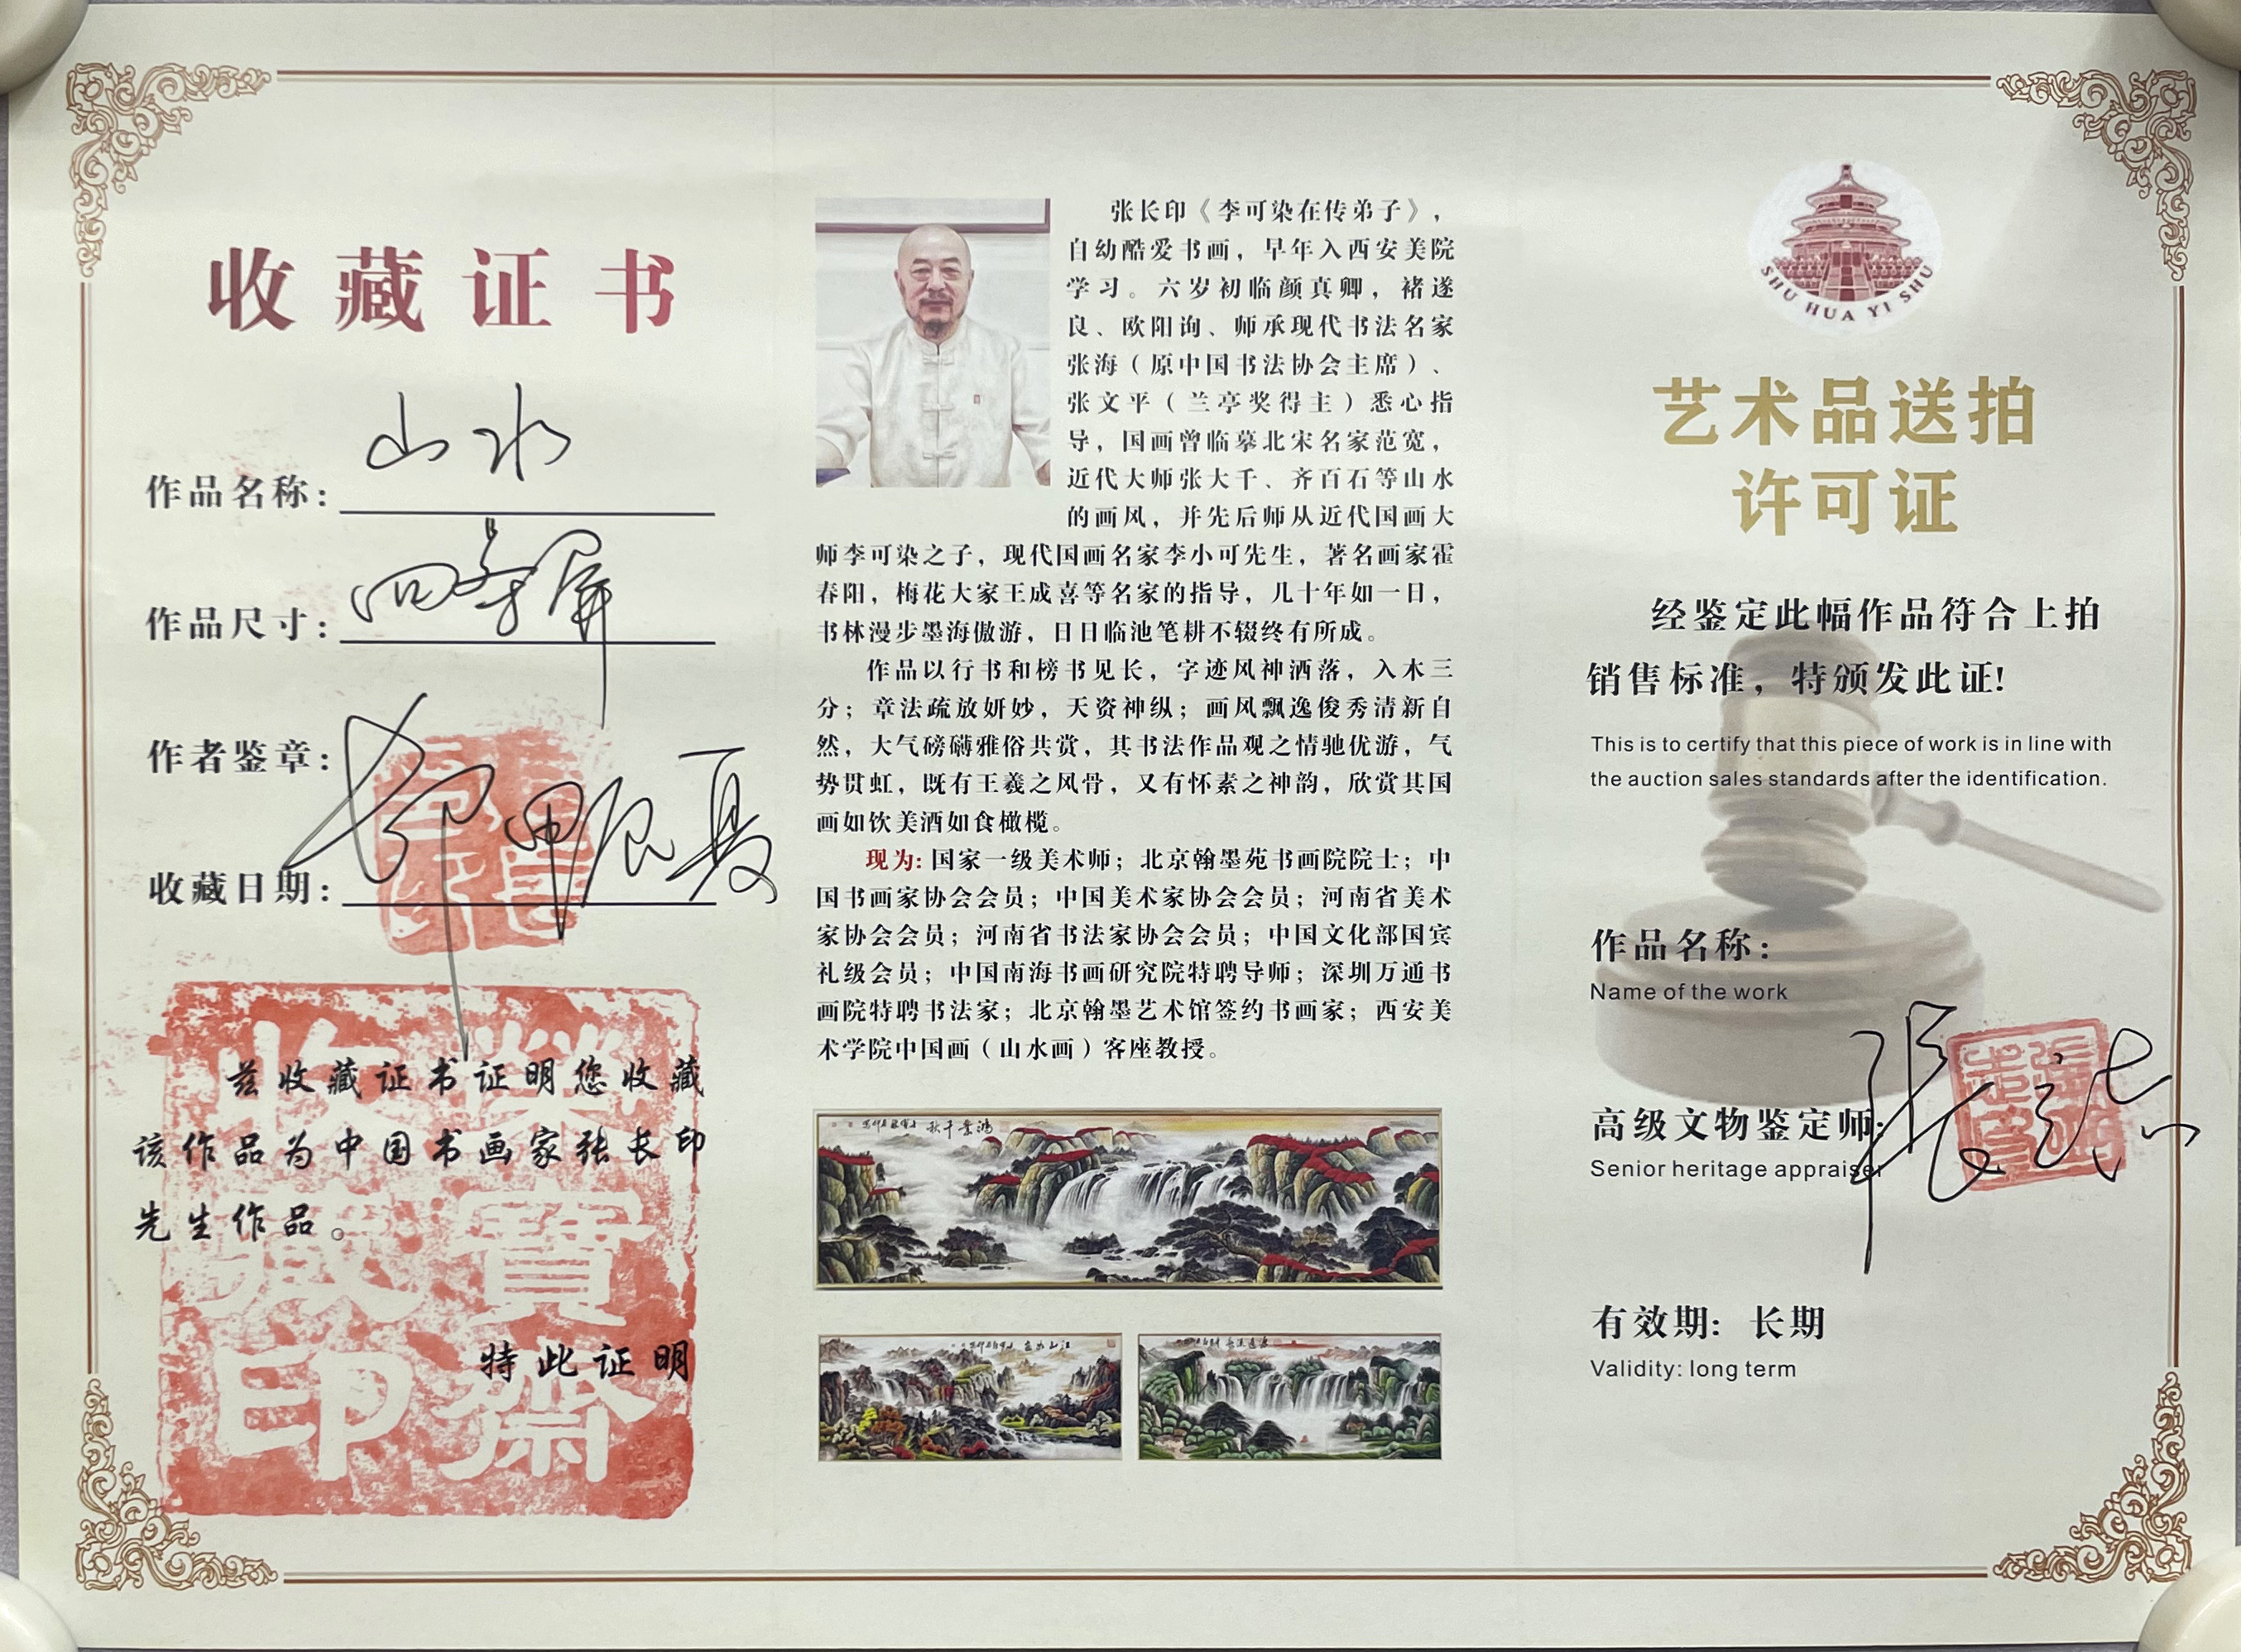 收藏证书
作品名称:
山水
作品尺寸:
四条屏
作者鉴章:
收藏日期:
兹收藏证书证明您收藏
该作品为中国书画家张长印
先生作品。
特此证明
榮寶齋
收藏印
张长印《李可染在传弟子》，
自幼酷爱书画，早年入西安美院
学习。六岁初临颜真卿，褚遂
良、欧阳询、师承现代书法名家
张海（原中国书法协会主席）、
张文平（兰亭奖得主）悉心指
导，国画曾临摹北宋名家范宽，
近代大师张大千、齐百石等山水
的画风，并先后师从近代国画大
师李可染之子，现代国画名家李小可先生，著名画家霍
春阳，梅花大家王成喜等名家的指导，几十年如一日，
书林漫步墨海傲游，日日临池笔耕不辍终有所成。
作品以行书和榜书见长，字迹风神洒落，入木三
分；章法疏放妍妙，天资神纵；画风飘逸俊秀清新自
然，大气磅礴雅俗共赏，其书法作品观之情驰优游，气
势贯虹，既有王羲之风骨，又有怀素之神韵，欣赏其国
画如饮美酒如食橄榄。
现为:国家一级美术师；北京翰墨苑书画院院士；中
国书画家协会会员；中国美术家协会会员；河南省美术
家协会会员；河南省书法家协会会员；中国文化部国宾
礼级会员；中国南海书画研究院特聘导师；深圳万通书
画院特聘书法家；北京翰墨艺术馆签约书画家；西安美
术学院中国画（山水画）客座教授。
SHU HUA YI SHU
艺术品送拍
许可证
经鉴定此幅作品符合上拍
销售标准，特颁发此证!
This is to certify that this piece of work is in line with
the auction sales standards after the identification.
作品名称:
Name of the work
高级文物鉴定师:
Senior heritage appraiser
有效期: 长期
Validity: long term